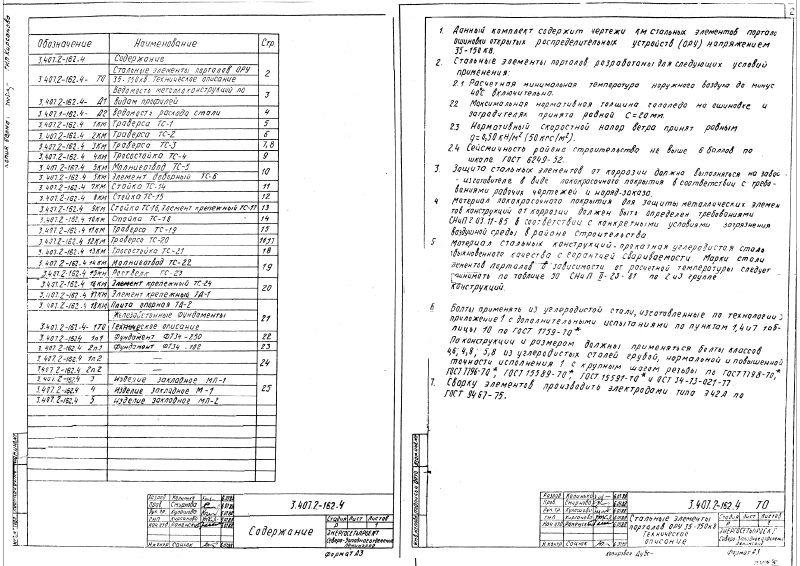 Обозначение Наименование Стр.
3.407.2-162.4 Содержание
3.407.2-162.4- ТО Стальные элементы порталов ОРУ 35-150кВ. Техническое описание 2
3.407.2-162.4- Д1 Ведомость металлоконструкций по видам профилей 3
3.407.2-162.4- Д2 Ведомость расхода стали 4
3.407.2-162.4 1КМ Траверса ТС-1 5
3.407.2-162.4 2КМ Траверса ТС-2 6
3.407.2-162.4 3КМ Траверса ТС-3 7,8
3.407.2-162.4 4КМ Тросостойка ТС-4 9
3.407.2-162.4 5КМ Молниеотвод ТС-5 10
3.407.2-162.4 Элемент ТС-6
3.407.2-162.4 7КМ Стойка ТС-14 11
3.407.2-162.4 8КМ Стойка ТС-15 12
3.407.2-162.4 9КМ Стойка ТС-16, Элемент крепежный ТС-17 13
3.407.2-162.4 10КМ Стойка ТС-18 14
3.407.2-162.4 11КМ Траверса ТС-19 15
3.407.2-162.4 12КМ Траверса ТС-20 16,17
3.407.2-162.4 13КМ Тросостойка ТС-21 18
3.407.2-162.4 14КМ Молниеотвод ТС-22 19
3.407.2-162.4 15КМ Ростверк ТС-23
3.407.2-162.4 16КМ Элемент крепежный ТС-24 20
3.407.2-162.4 17КМ Элемент крепежный ТА-1
3.407.2-162.4 18КМ Плита опорная ТА-2
Железобетонные фундаменты 21
3.407.2-162.4- 1ТО Техническое описание
3.407.2-162.4 1п1 Фундамент 22
3.407.2-162.4 2п1 Фундамент 23
3.407.2-162.4 1п2 — 24
3.407.2-162.4 2п2 —
3.407.2-162.4 3 Изделие закладное МЛ-1 25
3.407.2-162.4 4 Изделие закладное М-1
3.407.2-162.4 5 Изделие закладное МЛ-2
3.407.2-162.4
Содержание
Стадия Лист Листов
Р 1
ЭНЕРГОСЕТЬПРОЕКТ
Северо-Западное отделение
Ленинград
формат А3
2
1. Данный комплект содержит чертежи КМ стальных элементов портало
ошиновки открытых распределительных устройств (ОРУ) напряжением
35-150 кВ.
2. Стальные элементы порталов разработаны для следующих условий
применения:
2.1 Расчетная минимальная температура наружного воздуха до минус
40°С включительно.
2.2 Максимальная нормативная толщина гололеда на ошиновке и
заградителях принята равной С=20мм.
2.3 Нормативный скоростной напор ветра принят равным
q=0,50 кН/м² (50 кгс/м²).
2.4 Сейсмичность района строительства не выше 6 баллов по
шкале ГОСТ 6249-52.
3. Защита стальных элементов от коррозии должна выполняться на заво-
-изготовителе в виде лакокрасочного покрытия в соответствии с требо-
ваниями рабочих чертежей и наряд-заказа.
4 Материал лакокрасочного покрытия для защиты металлических элемен
тов конструкций от коррозии должен быть определен требованиями
СНиП 2.03.11-85 в соответствии с конкретными условиями загрязнения
воздушной среды в районе строительства
5 Материал стальных конструкций-прокатная углеродистая сталь
обыкновенного качества с гарантией свариваемости. Марки стали
элементов порталов в зависимости от расчетной температуры следует
принимать по таблице 50 СНиП II-23-81 по 2 группе
конструкций.
6. Болты применять из углеродистой стали, изготовленные по технологии
приложения 1 с дополнительными испытаниями по пунктам 1,4 и 7 таб-
лицы 10 по ГОСТ 1759-70*
По конструкции и размером должны применяться болты классов
4,6; 4,8; 5,8 из углеродистых сталей грубой, нормальной и повышенной
точности исполнения 1 с крупным шагом резьбы по ГОСТ 7798-70*,
ГОСТ 7796-70*, ГОСТ 15589-70*, ГОСТ 15591-70* и ОСТ 34-13-021-77
7. Сварку элементов производить электродами типа Э42А по
ГОСТ 9467-75.
3.407.2-162.4 ТО
Стальные элементы
порталов ОРУ 35-150кВ
Техническое
описание
Стадия Лист Листов
Р 1
ЭНЕРГОСЕТЬПРОЕКТ
Северо-Западное отделение
Ленинград
формат А3